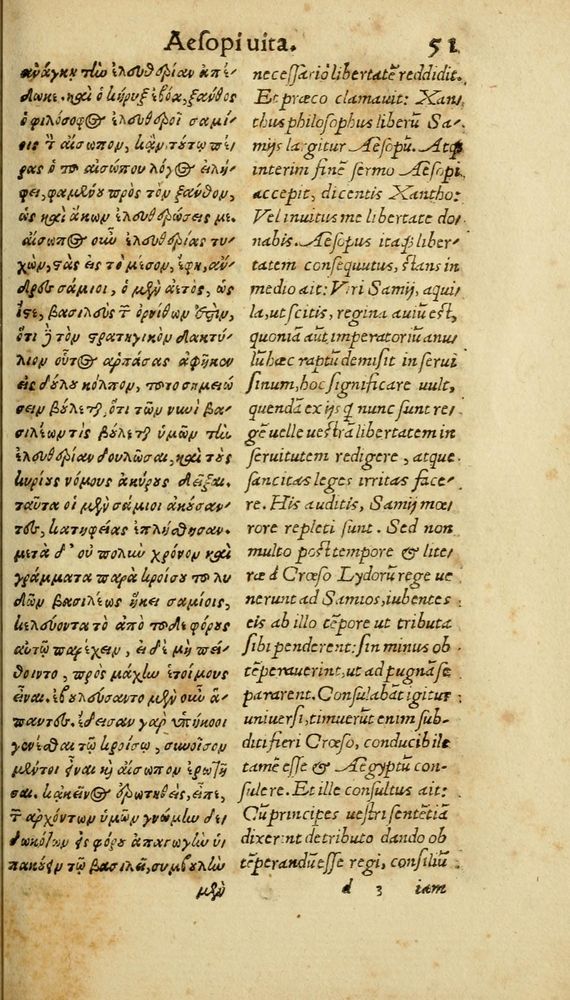 Aesopi vita. 51
ἀνάγκη τὼ ἐλευθερίαν ἀπέ-
δωκε. καὶ ὁ κήρυξ ἐβόα, ξανθος
ὁ φιλόσοφος ἐλευθεροῖ σαμί-
οις τ αἴσωπον, κἀν τούτῳ πέ-
ρας ὁ τ αἰσώπου λόγος εἰλή-
φει, φαμένου πρὸς τὸν ξανθον,
ὡς καὶ ἄκων ἐλευθερώσεις με.
αἴσωπος οὖν ἐλευθερίας τυ-
χὼν, στὰς εἰς τὸ μέσον, ἔφη, ἄν-
δρες σάμιοι, ὁ μὲν ἀετὸς, ὡς
ἴστε, βασιλεὺς τ ὀρνίθων ἐστὶν,
ὅτι ἢ τὸν στρατηγικὸν δακτύ-
λιον οὗτος ἁρπάσας ἀφῆκεν
εἰς δούλου κόλπον, τοῦτο σημειώ
σειν βούλεται, ὅτι τῶν νυνὶ βα-
σιλέων τὶς βούλεται ὑμῶν τὼ
ἐλευθερίαν δουλῶσαι, καὶ τοὺς
κυρίους νόμους ἀκύρους δεῖξαι.
ταῦτα οἱ μὲν σάμιοι ἀκούσαν-
τες, κατηφείας ἐπλήσθησαν.
μετὰ δ' οὐ πολὺν χρόνον καὶ
γράμματα παρὰ κροίσου τοῦ λυ
δῶν βασιλέως ἥκει σαμίοις,
κελεύοντα τὸ ἀπὸ τοῦδε φόρους
αὐτῷ παρέχειν, εἰ δὲ μὴ πεί-
θοιντο, πρὸς μάχὼ ἑτοίμους
εἶναι. ἐβουλεύσαντο μὲν οὖν ἅ-
παντες. ἔδεισαν γὰρ ὑπήκοοι
γενέσθαι τῷ κροίσῳ, συνοῖσον
μέντοι εἶναι καὶ αἴσωπον ἐρωτῆ
σαι. κἀκεῖνος ἐρωτηθεὶς, εἶπε,
τ ἀρχόντων ὑμῶν γνώμὼ δε-
δωκότων εἰς φόρου ἀπαγωγὼ ὑ-
πακούειν τῷ βασιλεῖ, συμβουλὼ
μὲν
necessariò libertatē reddidit.
Et præco clamauit: Xan-
thus philosophus liberū Sa-
mijs largitur Aesopū. Atq́;
interim finē sermo Aesopi
accepit, dicentis Xantho:
Vel inuitus me libertate do-
nabis. Aesopus itaq́; liber-
tatem consequutus, stans in
medio ait: Viri Samij, aqui
la, ut scitis, regina auiū est,
quoniā aūt imperatoriū anu-
lū hæc raptū demisit in serui
sinum, hoc significare uult,
quendā ex ijs q̄ nunc sunt re-
gē uelle uestrā libertatem in
seruitutem redigere, atque
sancitas leges irritas face-
re. His auditis, Samij mœ-
rore repleti sunt. Sed non
multo post tempore & lite-
ræ à Crœso Lydorū rege ue
nerunt ad Samios, iubentes
eis ab illo tēpore ut tributa
sibi penderent: sin minus ob
tēperauerint, ut ad pugnā se
pararent. Consulabāt igitur
uniuersi, timuerūt enim sub-
diti fieri Crœso, conducibile
tamē esse & Aegyptū con-
sulere. Et ille consultus ait:
Cū principes uestri sentētiā
dixerint de tributo dando ob
tēperandū esse regi, consiliū
d 3 iam